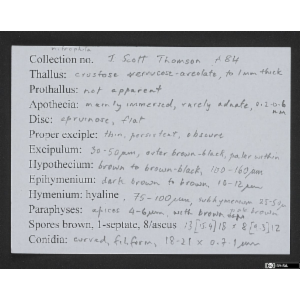 Collection no. J Scott Thomson λ84
Thallus: crustose verrucose-areolate, to 1mm thick
Prothallus: not apparent
Apothecia: mainly immersed, rarely adnate, 0.2-0.6 mm
Disc: epruinose, flat
Proper exciple: thin, persistent, obscure
Excipulum: 30-50µm, outer brown-black, paler within
Hypothecium: brown to brown-black, 100-160µm
Epihymenium: dark brown to brown 10-12µm
Hymenium: hyaline, 75-100µm, subhymenium
Paraphyses: apices 4-6µm, with brown caps
Spores brown, 1-septate, 8/ascus
Conidia: curved, filiform, 18-21 x 0.7-1µm